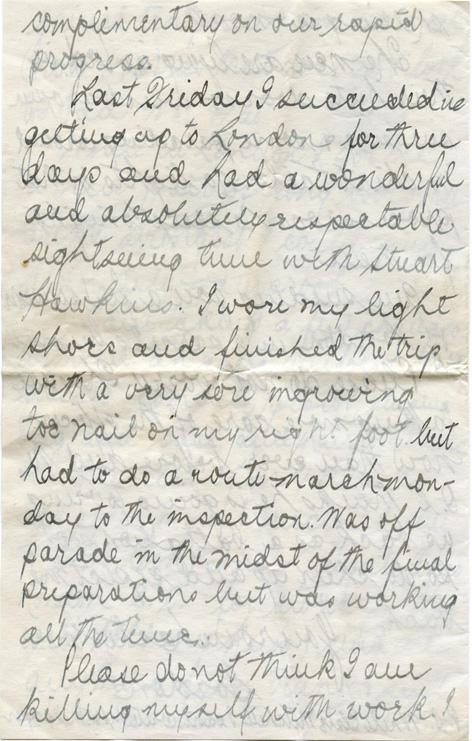 complimentary on our rapid
progress.
Last Friday I succeeded in
getting up to London for three
days and had a wonderful
and absolutely respectable
sightseeing time with Stuart
Hawkins. I wore my light
shoes and finished the trip
with a very sore ingrowing
toe nail on my right foot but
had to do a route-march mon-
day to the inspection. Was off
parade in the midst of the final
preparations but was working
all the time.
Please do not think I am
killing myself with work. I